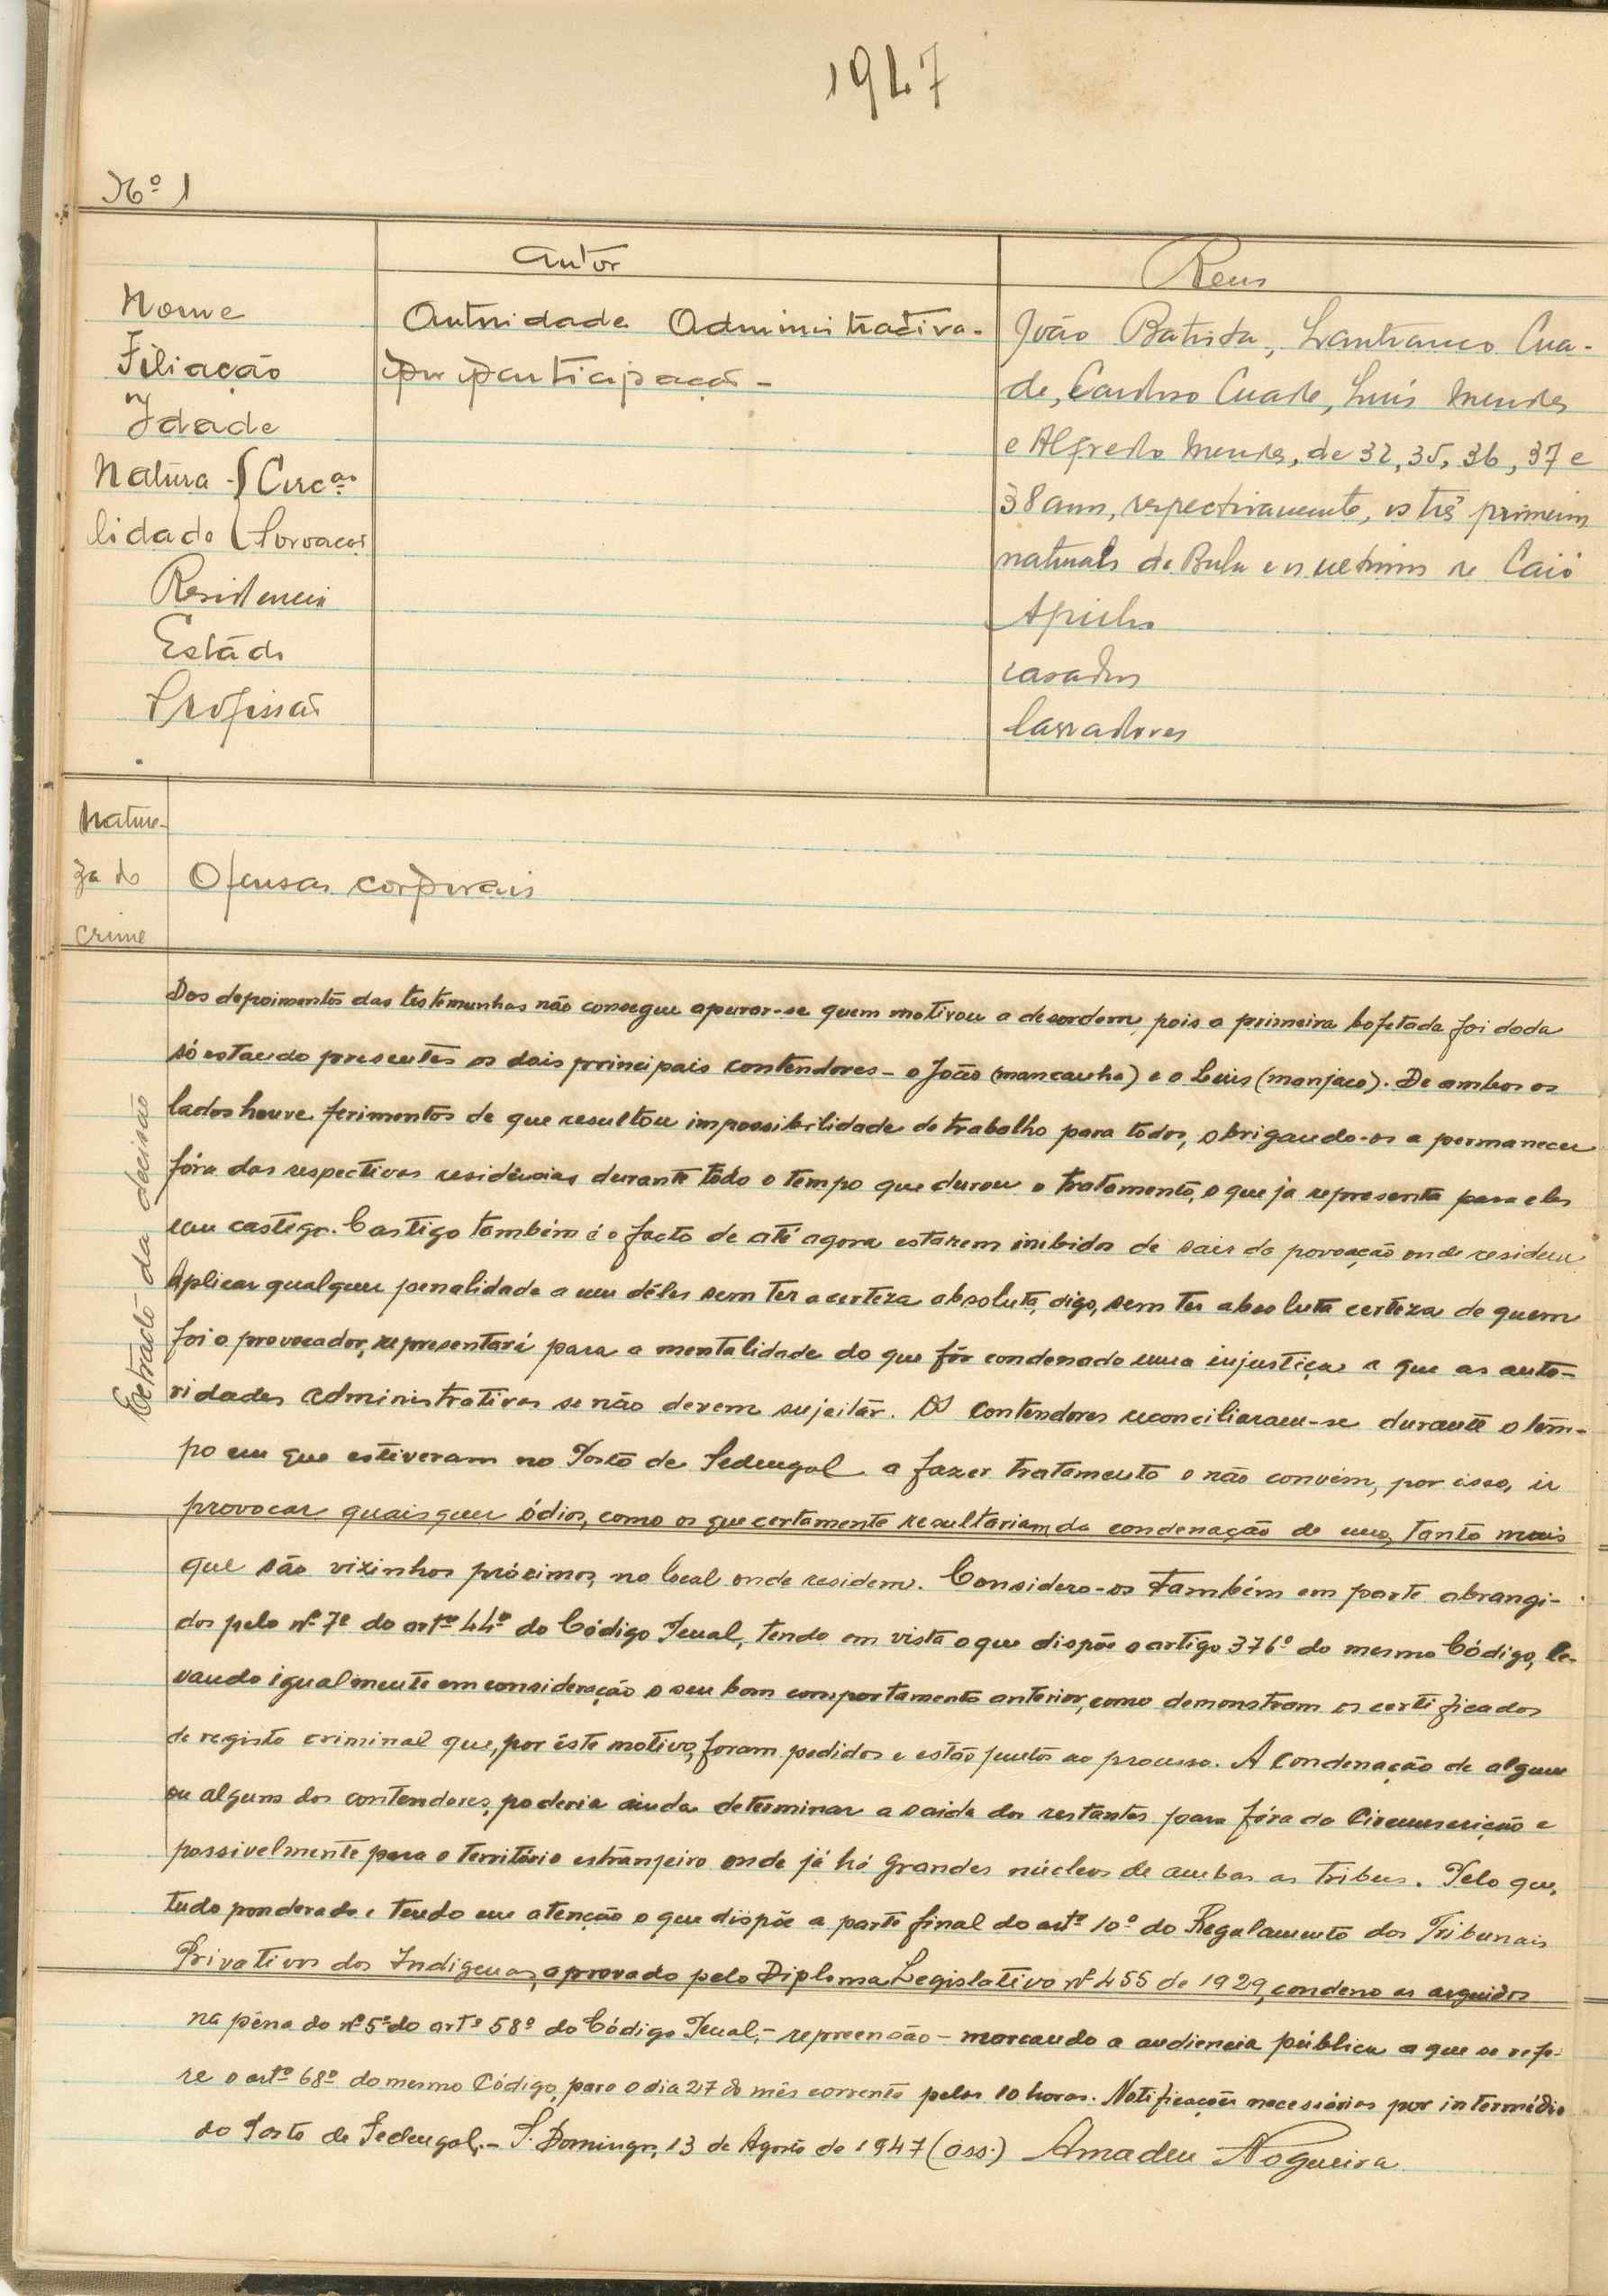 1947
Nº 1
Autor
Reus
Nome
Autoridade Administrativa-
João Batista, Lanfranco Cua-
Filiação
por participação-
de, Cardoso Cuade, Luís Mendes
Idade
e Alfredo Mendes, de 32, 35, 36, 37 e
Natura-{Circ.ão
38 anos, respectivamente, os três primeiros
lidade {Povoação
naturais de Bula e os ultimos de Caió
Residencia
Apilho
Estádo
casados
Profissão
lavradores
Nature-
za do
Ofensas corporais
crime
Extracto da decisão
Dos depoimentos das testemunhas não consegue apurar-se quem motivou a desordem, pois a primeira bofetada foi dada
só estando presentes os dois principais contendores - o João (mancanha) e o Luis (manjaco). De ambos os
lados houve ferimentos de que resultou impossibilidade de trabalho para todos, obrigando-os a permanecer
fóra das respectivas residências durante todo o tempo que durou o tratamento, o que já representa para eles
um castigo. Castigo também é o facto de até agora estarem inibidos de sair da povoação onde residem.
Aplicar qualquer penalidade a um dêles sem ter a certeza absoluta, digo, sem ter absoluta certeza de quem
foi o provocador, representará para a mentalidade do que fôr condenado uma injustiça a que as auto-
ridades administrativas se não devem sujeitar. Os contendores reconciliaram-se durante o tem-
po em que estiveram no Posto de Sedengal a fazer tratamento e não convém, por isso, ir
provocar quaisquer ódios, como os que certamente resultariam da condenação de uns, tanto mais
que são vizinhos próximos, no local onde residem. Considero-os também em parte abrangi-
dos pelo nº 7º do artº 44º do Código Penal, tendo em vista o que dispõe o artigo 376º do mesmo Código, le-
vando igualmente em consideração o seu bom comportamento anterior, como demonstram os certificados
de registo criminal que, por êste motivo, foram pedidos e estão juntos ao processo. A condenação de algum
ou alguns dos contendores, poderia ainda determinar a saida dos restantes para fóra da Circunscrição e
possivelmente para o território estranjeiro onde já há grandes núcleos de ambas as tribus. Pelo que,
tudo ponderado e tendo em atenção o que dispõe a parte final do artº 10º do Regulamento dos Tribunais
Privativos dos Indigenas, aprovado pelo Diploma Legislativo nº 455 de 1929, condeno os arguidos
na pêna do nº 5º do artº 58º do Código Penal, - repreensão - marcando a audiencia pública a que se refe-
re o artº 68º do mesmo Código, para o dia 27 do mês corrente pelas 10 horas. Notificações necessárias por intermédio
do Posto de Sedengal. - S. Domingos, 13 de Agosto de 1947 (ass.) Amadeu Nogueira